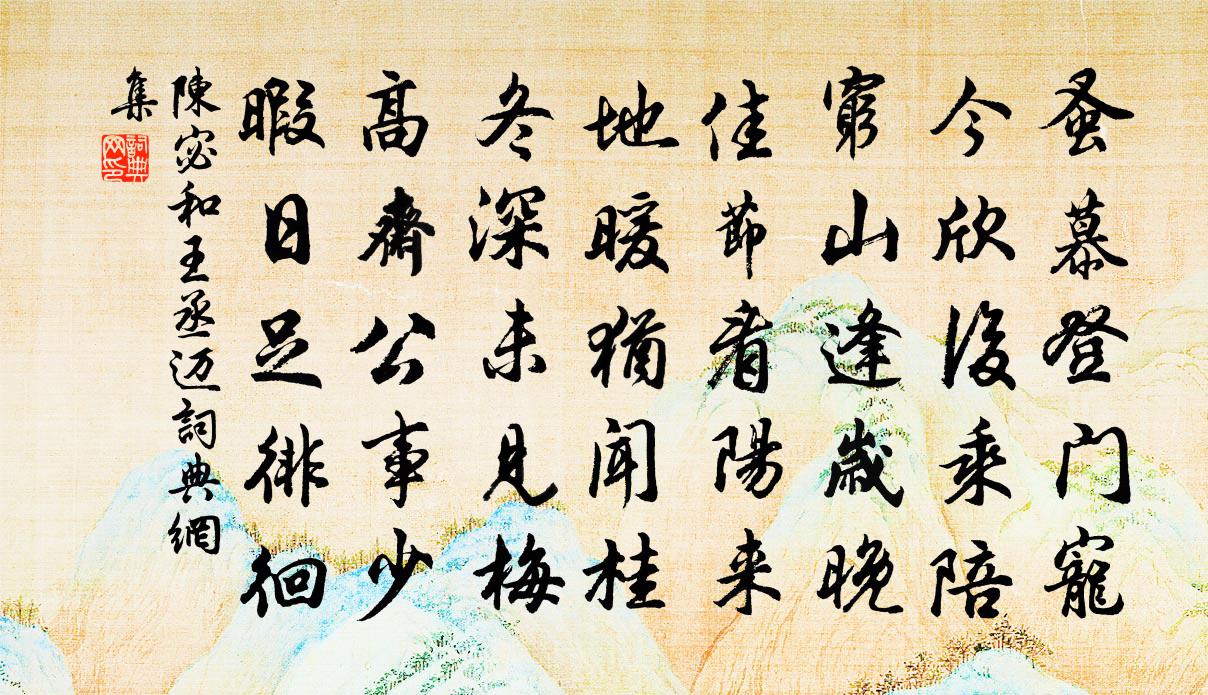 蚤慕登门寵
今欣後乘陪
窮山逢歲晚
佳節看陽来
地暖猶聞桂
冬深未見梅
高齋公事少
暇日足徘徊
陳宓和王丞迈詞典網
集
詞典網印